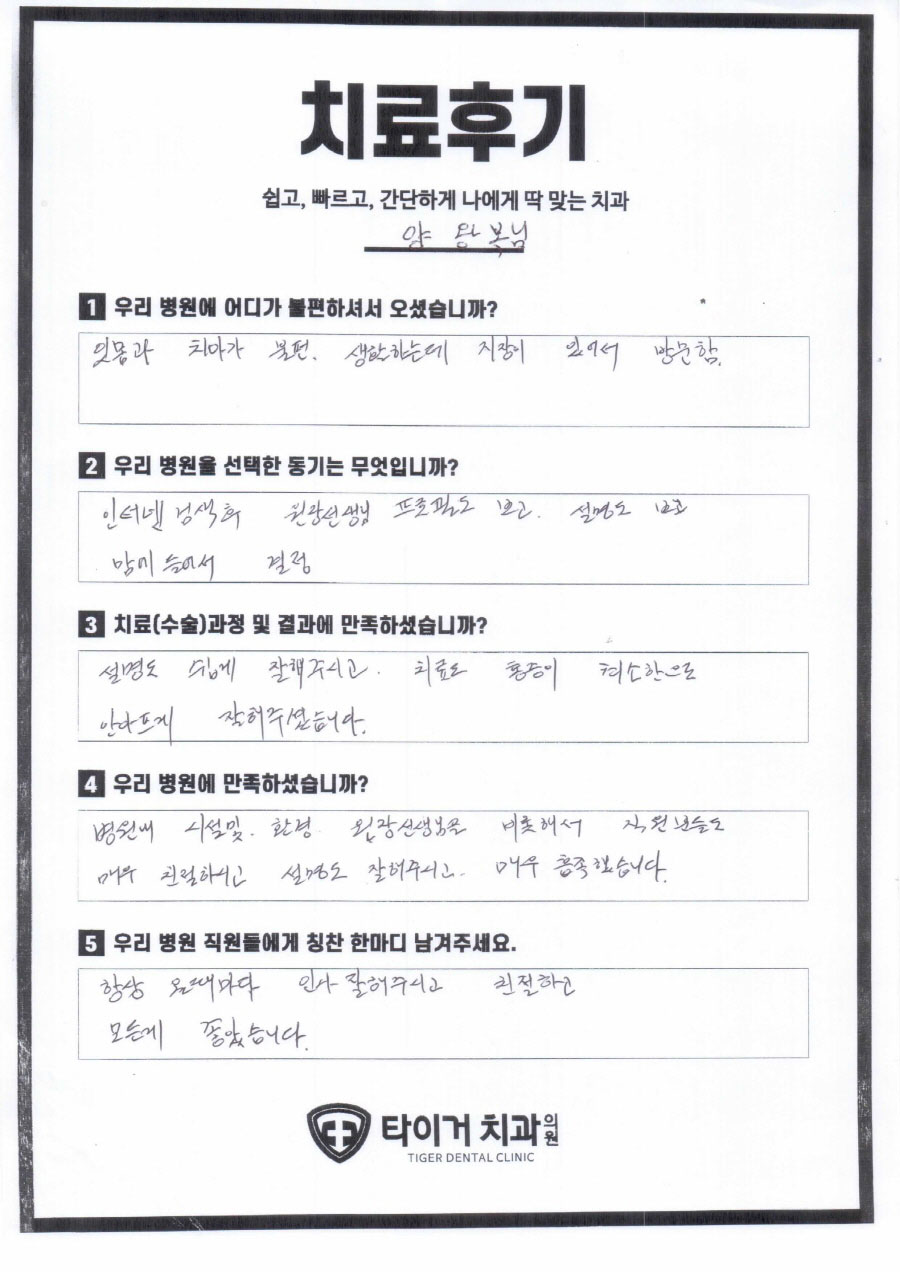 치료후기
쉽고, 빠르고, 간단하게 나에게 딱 맞는 치과
양 왕복님
1 우리 병원에 어디가 불편하셔서 오셨습니까?
잇몸과 치아가 불편. 생활하는데 지장이 있어서 방문함.
2 우리 병원을 선택한 동기는 무엇입니까?
인터넷 검색후 원장선생님 프로필도 보고. 설명도 보고
맘에 들어서 결정
3 치료(수술)과정 및 결과에 만족하셨습니까?
설명도 쉽게 잘해주시고. 치료도 통증이 최소한으로
안아프게 잘해주셨습니다.
4 우리 병원에 만족하셨습니까?
병원내 시설및. 환경. 원장선생님을 비롯해서 직원분들도
매우 친절하시고 설명도 잘해주시고. 매우 흡족했습니다.
5 우리 병원 직원들에게 칭찬 한마디 남겨주세요.
항상 올때마다 인사 잘해주시고 친절하고
모든게 좋았습니다.
타이거 치과의원
TIGER DENTAL CLINIC